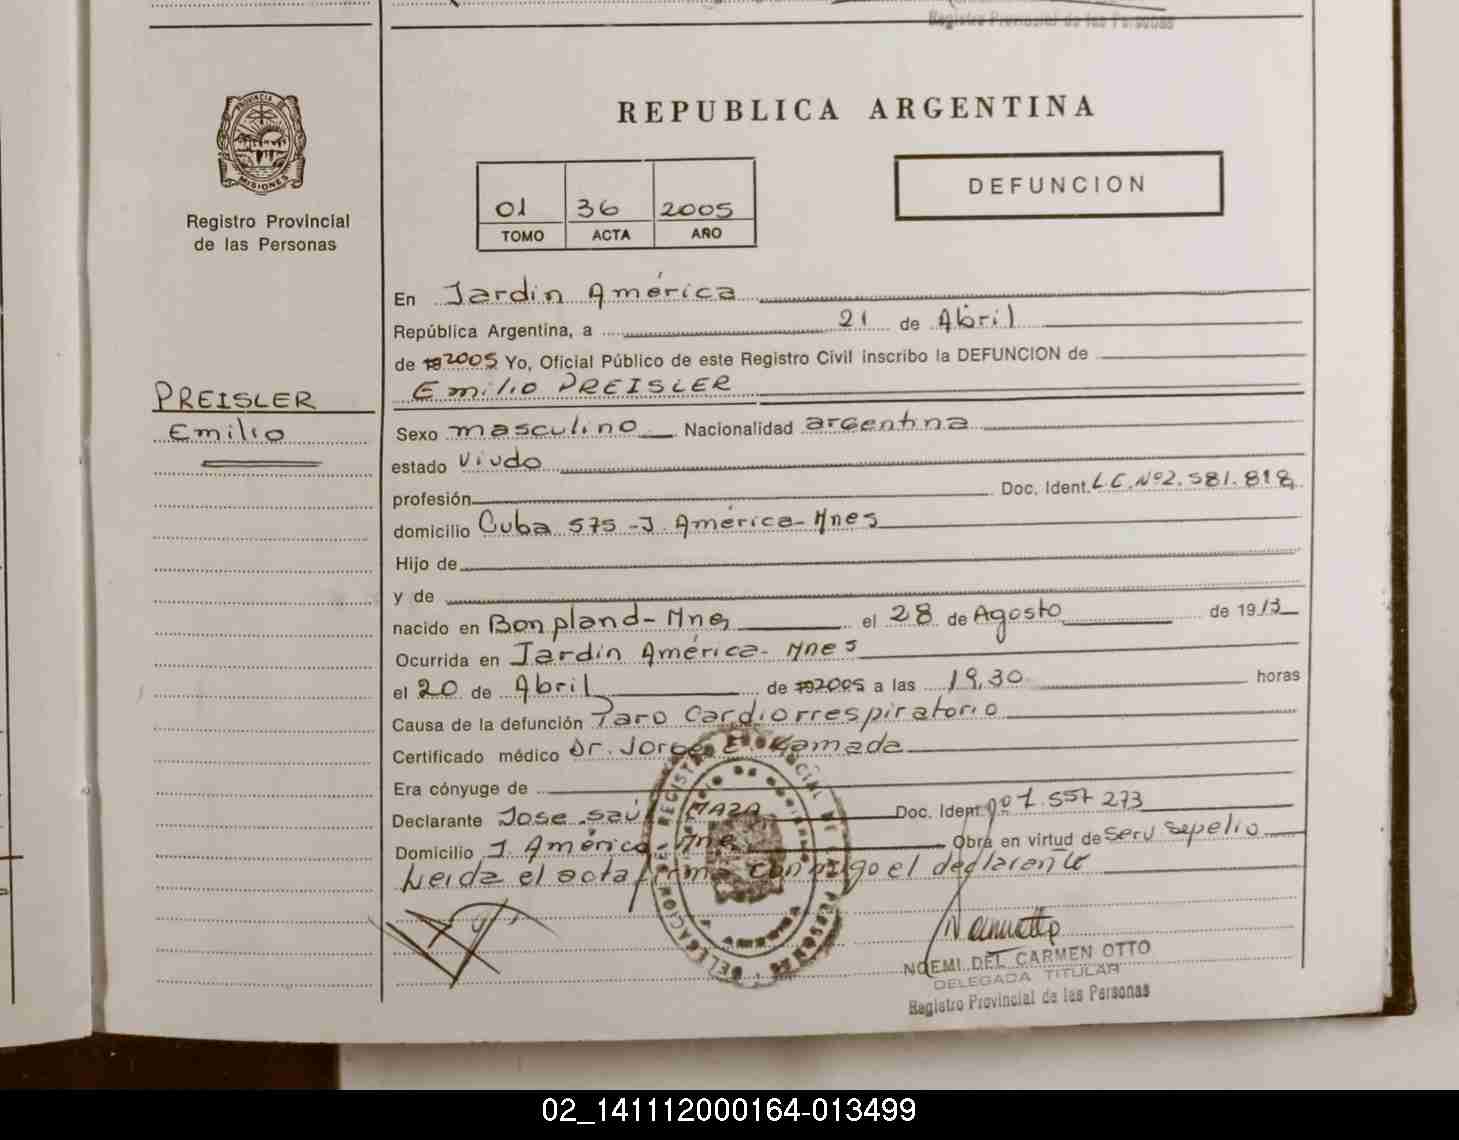 Registro Provincial de las Personas
REPUBLICA ARGENTINA
PROVINCIA DE
MISIONES
Registro Provincial
de las Personas
01 36 2005
TOMO ACTA AÑO
DEFUNCION
En Jardin América
República Argentina, a 21 de Abril
de 2005 Yo, Oficial Público de este Registro Civil inscribo la DEFUNCION de
PREISLER
Emilio
Emilio PREISLER
Sexo masculino Nacionalidad argentina
estado Viudo
profesión Doc. Ident. L.C. Nº 2.581.818
domicilio Cuba 575 - J. América - Mnes
Hijo de
y de
nacido en Bonpland - Mnes el 28 de Agosto de 1913
Ocurrida en Jardin América - Mnes
el 20 de Abril de 2005 a las 19,30 horas
Causa de la defunción Paro Cardiorrespiratorio
Certificado médico Dr. Jorge E. Kamada
Era cónyuge de
Declarante Jose Saúl MAZA Doc. Ident. 7.557.273
Domicilio J. América - Mnes Obra en virtud de Serv Sepelio
Leida el acta firma conmigo el declarante
NOEMI DEL CARMEN OTTO
DELEGADA TITULAR
Registro Provincial de las Personas
02_141112000164-013499